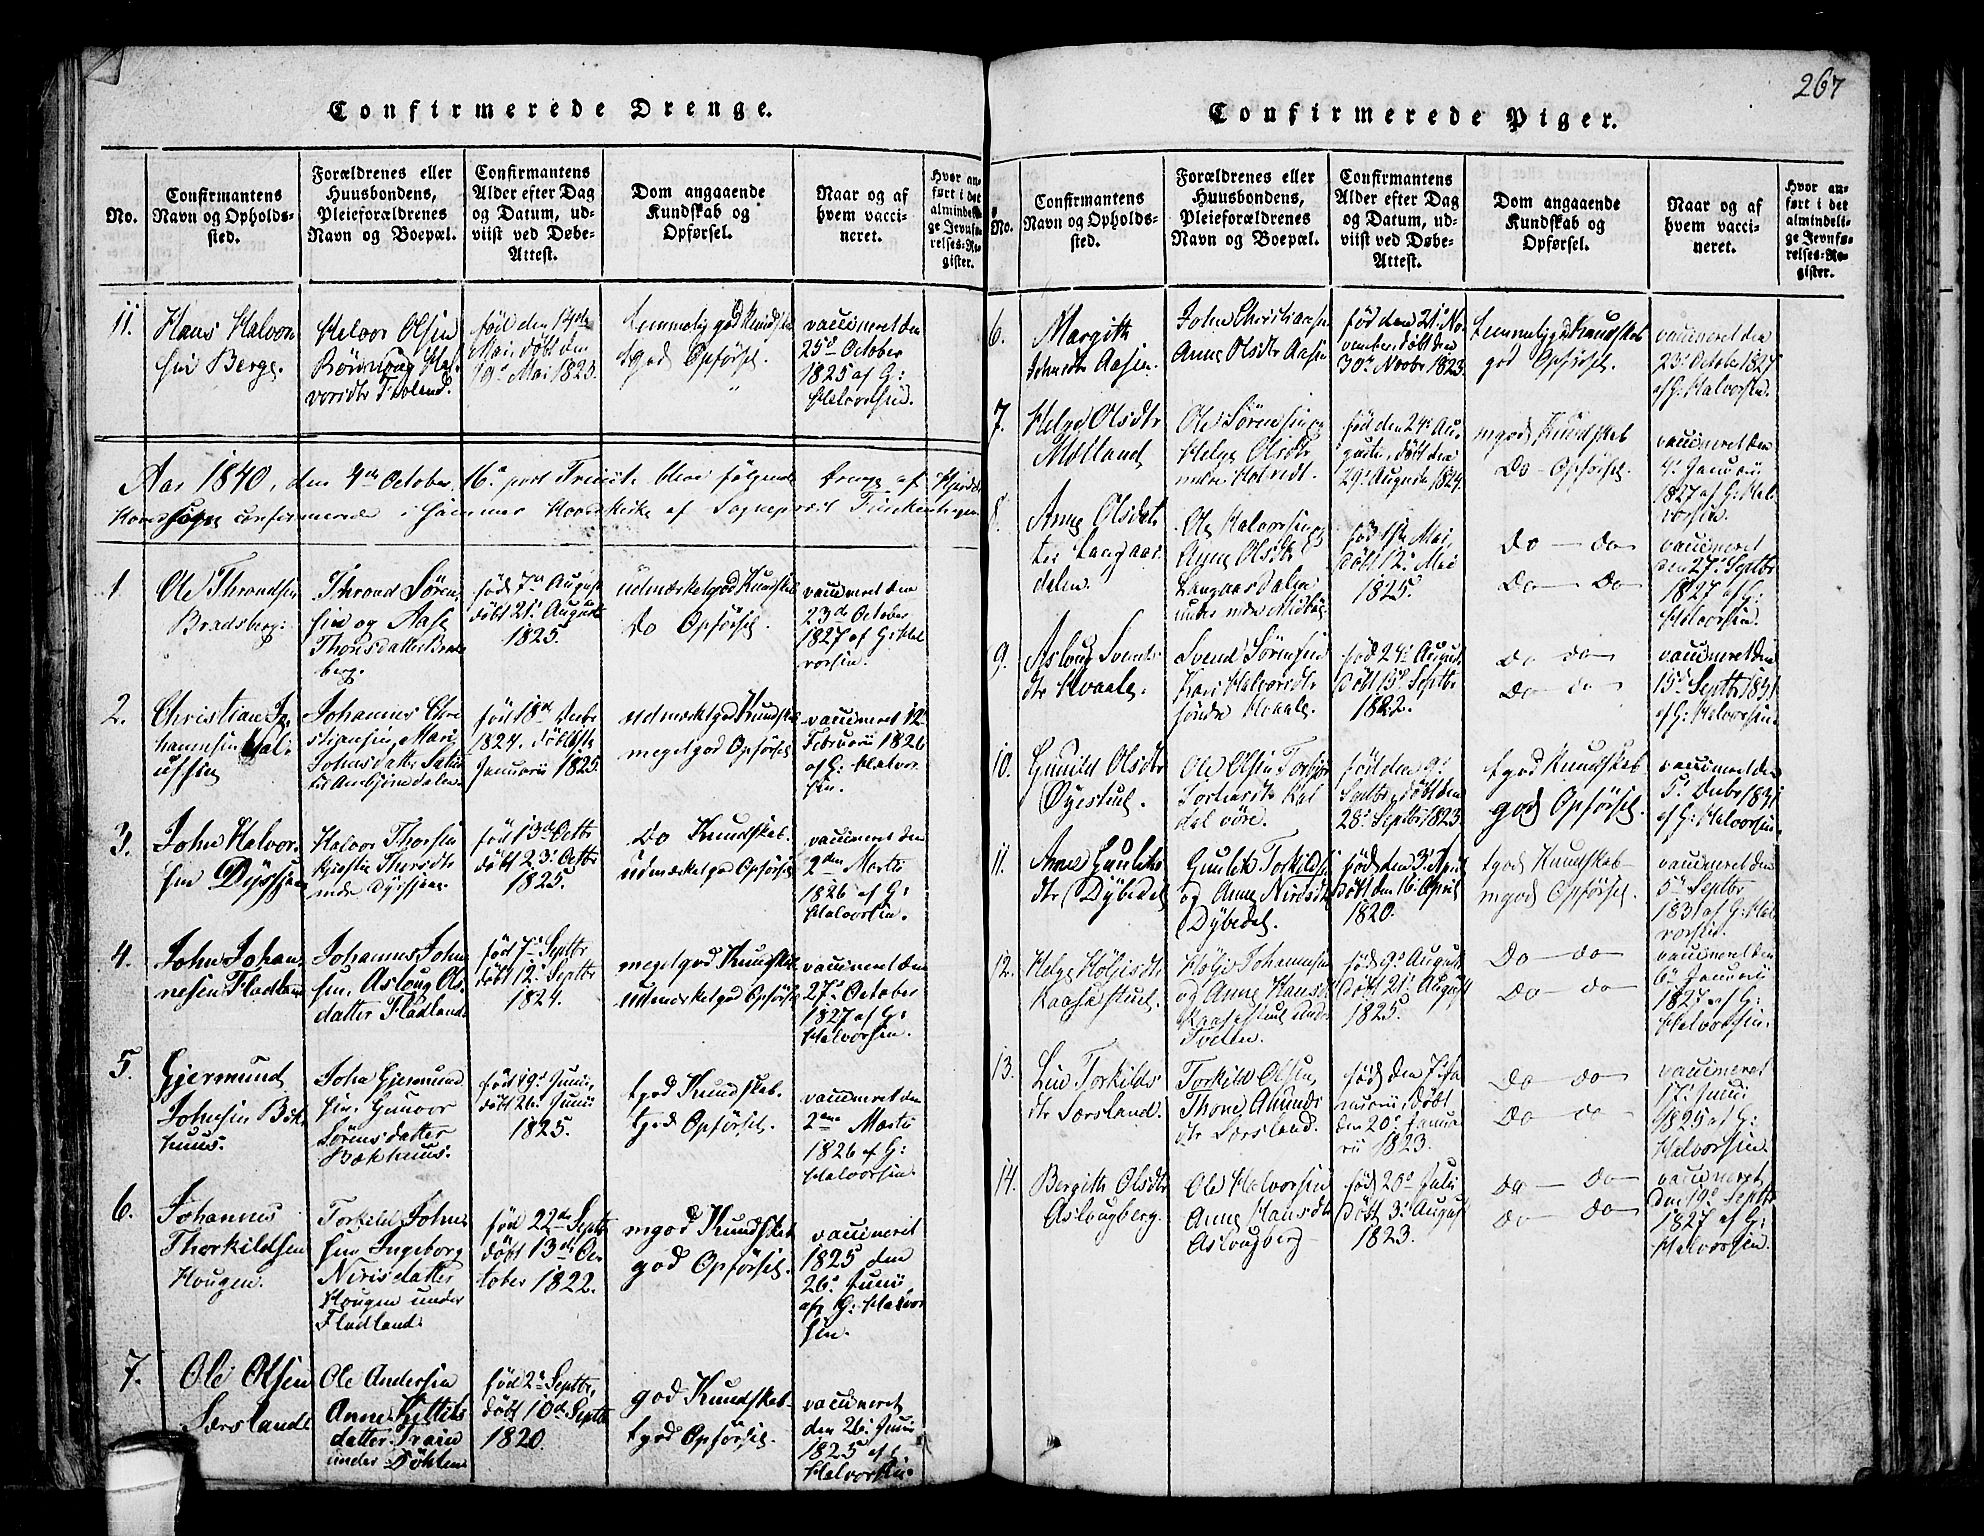 267
Confirmerede Drenge.
No.
Confirmantens
Navn og Opholds-
sted.
Forældrenes eller
Huusbondens,
Pleieforældrenes
Navn og Boepæl.
Confirmantens
Alder efter Dag
og Datum, ud-
viist ved Døbe-
Attest.
Dom angaaende
Kundskab og
Opførsel.
Naar og af
hvem vacci-
neret.
Hvor an-
ført i det
almindeli-
ge Jevnfø-
relses-Re-
gister.
11.
Hans Halvor
sen Berge.
Halvor Olsen
voridtr
født den 14de
Mai, døbt den
19de Mai 1825.
temmelig god Kundskab
tgod Opførsel.
vaccineret den
25de October
1825 af G:
Halvorsen.
Aar 1840, den 4de October, 16de post Trinit: bleve følgende
confirmerede i
1.
Ole Throndsen
Bradsberg.
Thrond Søren-
sen og Aase
Thorisdatter
berg.
født 7de August
døbt 21de August
1825.
udmærketgod Kundskab
do Opførsel.
vaccineret den
23de October
1827 af G: Hal
vorsen.
2.
Christian Jo-
hannesen
Johannes Chri
stiansen, Mari
Johnsdatter
født 18de Decbr
1824. døbt
Januarii 1825.
udmærketgod Kundskab
megetgod Opførsel
vaccineret 12
Februarii 1826
af G: Halvor
sen.
3.
John Halvor-
sen Dyssen
Halvor Thorsen
Kjersti Thorsdtr
nedre Dyssen.
født 13de Octbr
døbt 23de Octbr
1825.
do Kundskab
udmærketgod Opførsel
vaccineret den
2den Martii
1826 af G:
Halvorsen.
4.
John Johan-
nesen Fladland
Johannes John
sen, Aslaug Ols
datter Fladland
født 7de Septbr
døbt 12te Septbr
1824.
megetgod Kundskab
udmærketgod Opførsel
vaccineret den
27de October
1827 af G:
Halvorsen.
5.
Gjermund
Johnsen Bøk
huus.
John Gjermund
sen, Gunvor
Sørensdatter
Bøkhuus.
født 19de Junii,
døbt 26de Junii
1825.
tgod Kundskab.
tgod Opførsel.
vaccineret den
2den Martii
1826 af G:
Halvorsen.
6.
Johannes
Thorkildsen
Hougen.
Torkild John
sen Ingeborg
Nirisdatter
Hougen under
Fladland.
født 22de Septbr
døbt 13de Oc
tober 1822.
mgod Kundskab
god Opførsel.
vaccineret
1825 den
26de Junii
af G: Halvor
sen.
7.
Ole Olsen
Særslandt
Ole Andersen
Anne Kittels
datter
under
født 2de Septbr,
døbt 10de Septbr
1820.
god Kundskab
tgod Opførsel.
vaccineret
den 26de Junii
1825 af G:
Halvorsen.
Confirmerede Piger.
No.
Confirmantens
Navn og Opholds-
sted.
Forældrenes eller
Huusbondens,
Pleieforældrenes
Navn og Boepæl.
Confirmantens
Alder efter Dag
og Datum, ud-
viist ved Døbe-
Attest.
Dom angaaende
Kundskab og
Opførsel.
Naar og af
hvem vacci-
neret.
Hvor an-
ført i det
almindeli-
ge Jevnfø-
relses-Re-
gister.
6.
Margith
Johnsdtr Aasen.
John Christiansen
Anne Olsdtr Aasen
født den 21de No
vember, døbt den
30de Novbr 1823.
temmelig god Kundskab
god Opførsel.
vaccineret den
23de October 1827
af G: Halvorsen.
7.
Helge Olsdtr
Mølland
Ole Sørensen og
Helge Olsdtr
født den 24de Au-
gusti, døbt den
29de Augusti 1824.
mgod Kundskab
Do - Opførsel.
vaccineret den
4de Januarii
1827 af G: Hal
vorsen.
8.
Anne Olsdat-
ter Langaas
dalen.
Ole Halvorsen og
Anne Olsdtr
Langaasdalen
født 1ste Mai,
døbt 12te Mai
1825.
Do - do
Do - Do
vaccineret
den 27de Septbr
1827 af G:
Halvorsen.
9.
Aslaug Svends
dtr Hvaale.
Svend Sørensen
Kari Halvorsdtr
søndre Hvaale.
født 24de August
døbt 15de Septbr
1822.
Do do
Do - do
vaccineret den
15de Septbr 1831
af G: Halvorsen.
10.
Gunild Olsdtr
Øyestul.
Ole Olsen
født den 9de
Septbr, døbt den
28de Septbr 1823
tgod Kundskab
god Opførsel.
vaccineret den
5te Decbr 1831
af G: Halvorsen.
11.
Anne Gunleiks
dtr Dybedal
Gunleik Torkilds
og Anne Nirisdtr
Dybedal.
født den 3de April
døbt den 16de April
1820.
tgod Kundskab
mgod Opførsel.
vaccineret den
5te Septbr
1831 af G: Hal
vorsen.
12.
Helge Høljesdtr
Kaasastul.
Hølje Johannesen
og Anne Hansd
Kaasastul under
Tveten.
født 9de August
døbt 21de August
1825.
Do - do
Do - do
vaccineret den
6te Januarii
1827 af G:
Halvorsen.
13.
Liv Torkilds
dtr Særsland.
Torkild Olsen,
Thone Amunds
dtr Særsland.
født den 7de Ja
nuarii, døbt
den 20de Janua
rii 1823.
Do - do
Do - do
vaccineret
17de Junii
1825 af G:
Halvorsen.
14.
Bergith Olsdtr
Aslaugberg.
Ole Halvorsen
Anne Hansdtr
Aslougberg
født 20de Juli
døbt 3de August
1823.
Do - Do
Do - Do
vaccineret
den 19de Septbr
1827 af G:
Halvorsen.